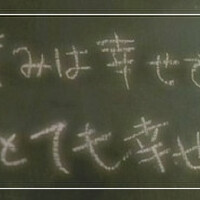 みは幸せ
とても幸せ